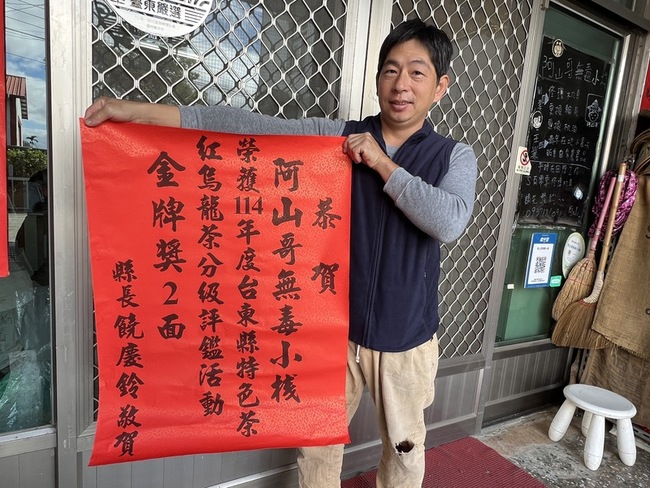 恭賀
阿山哥無毒小棧
榮獲114年度台東縣特色茶
紅烏龍茶分級評鑑活動
金牌獎2面
縣長饒慶鈴敬賀
臺東嚴選
阿山哥無毒小